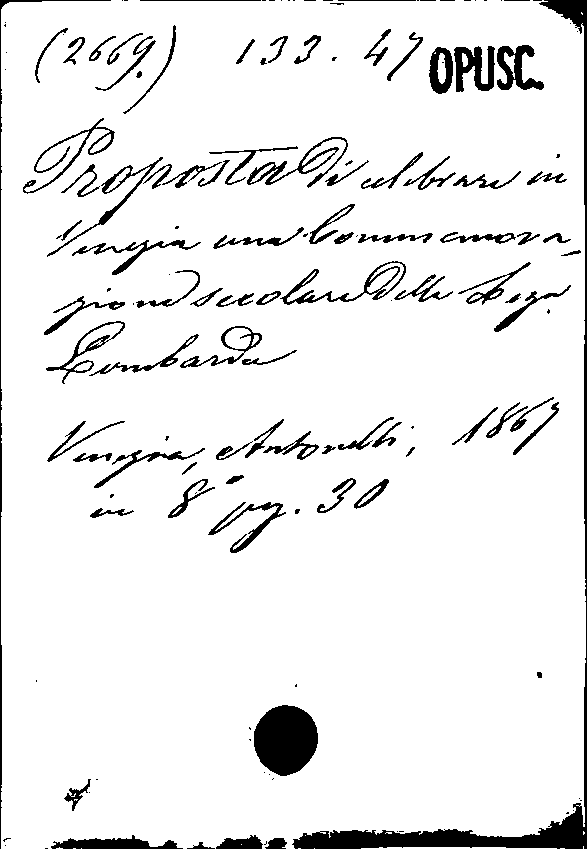 (2669) 133.47 OPUSC.
Proposta di celebrare in
Venezia una Commemora-
zione secolare della Lega
Lombarda
Venezia, Antonelli, 1867
in 8° pg. 30